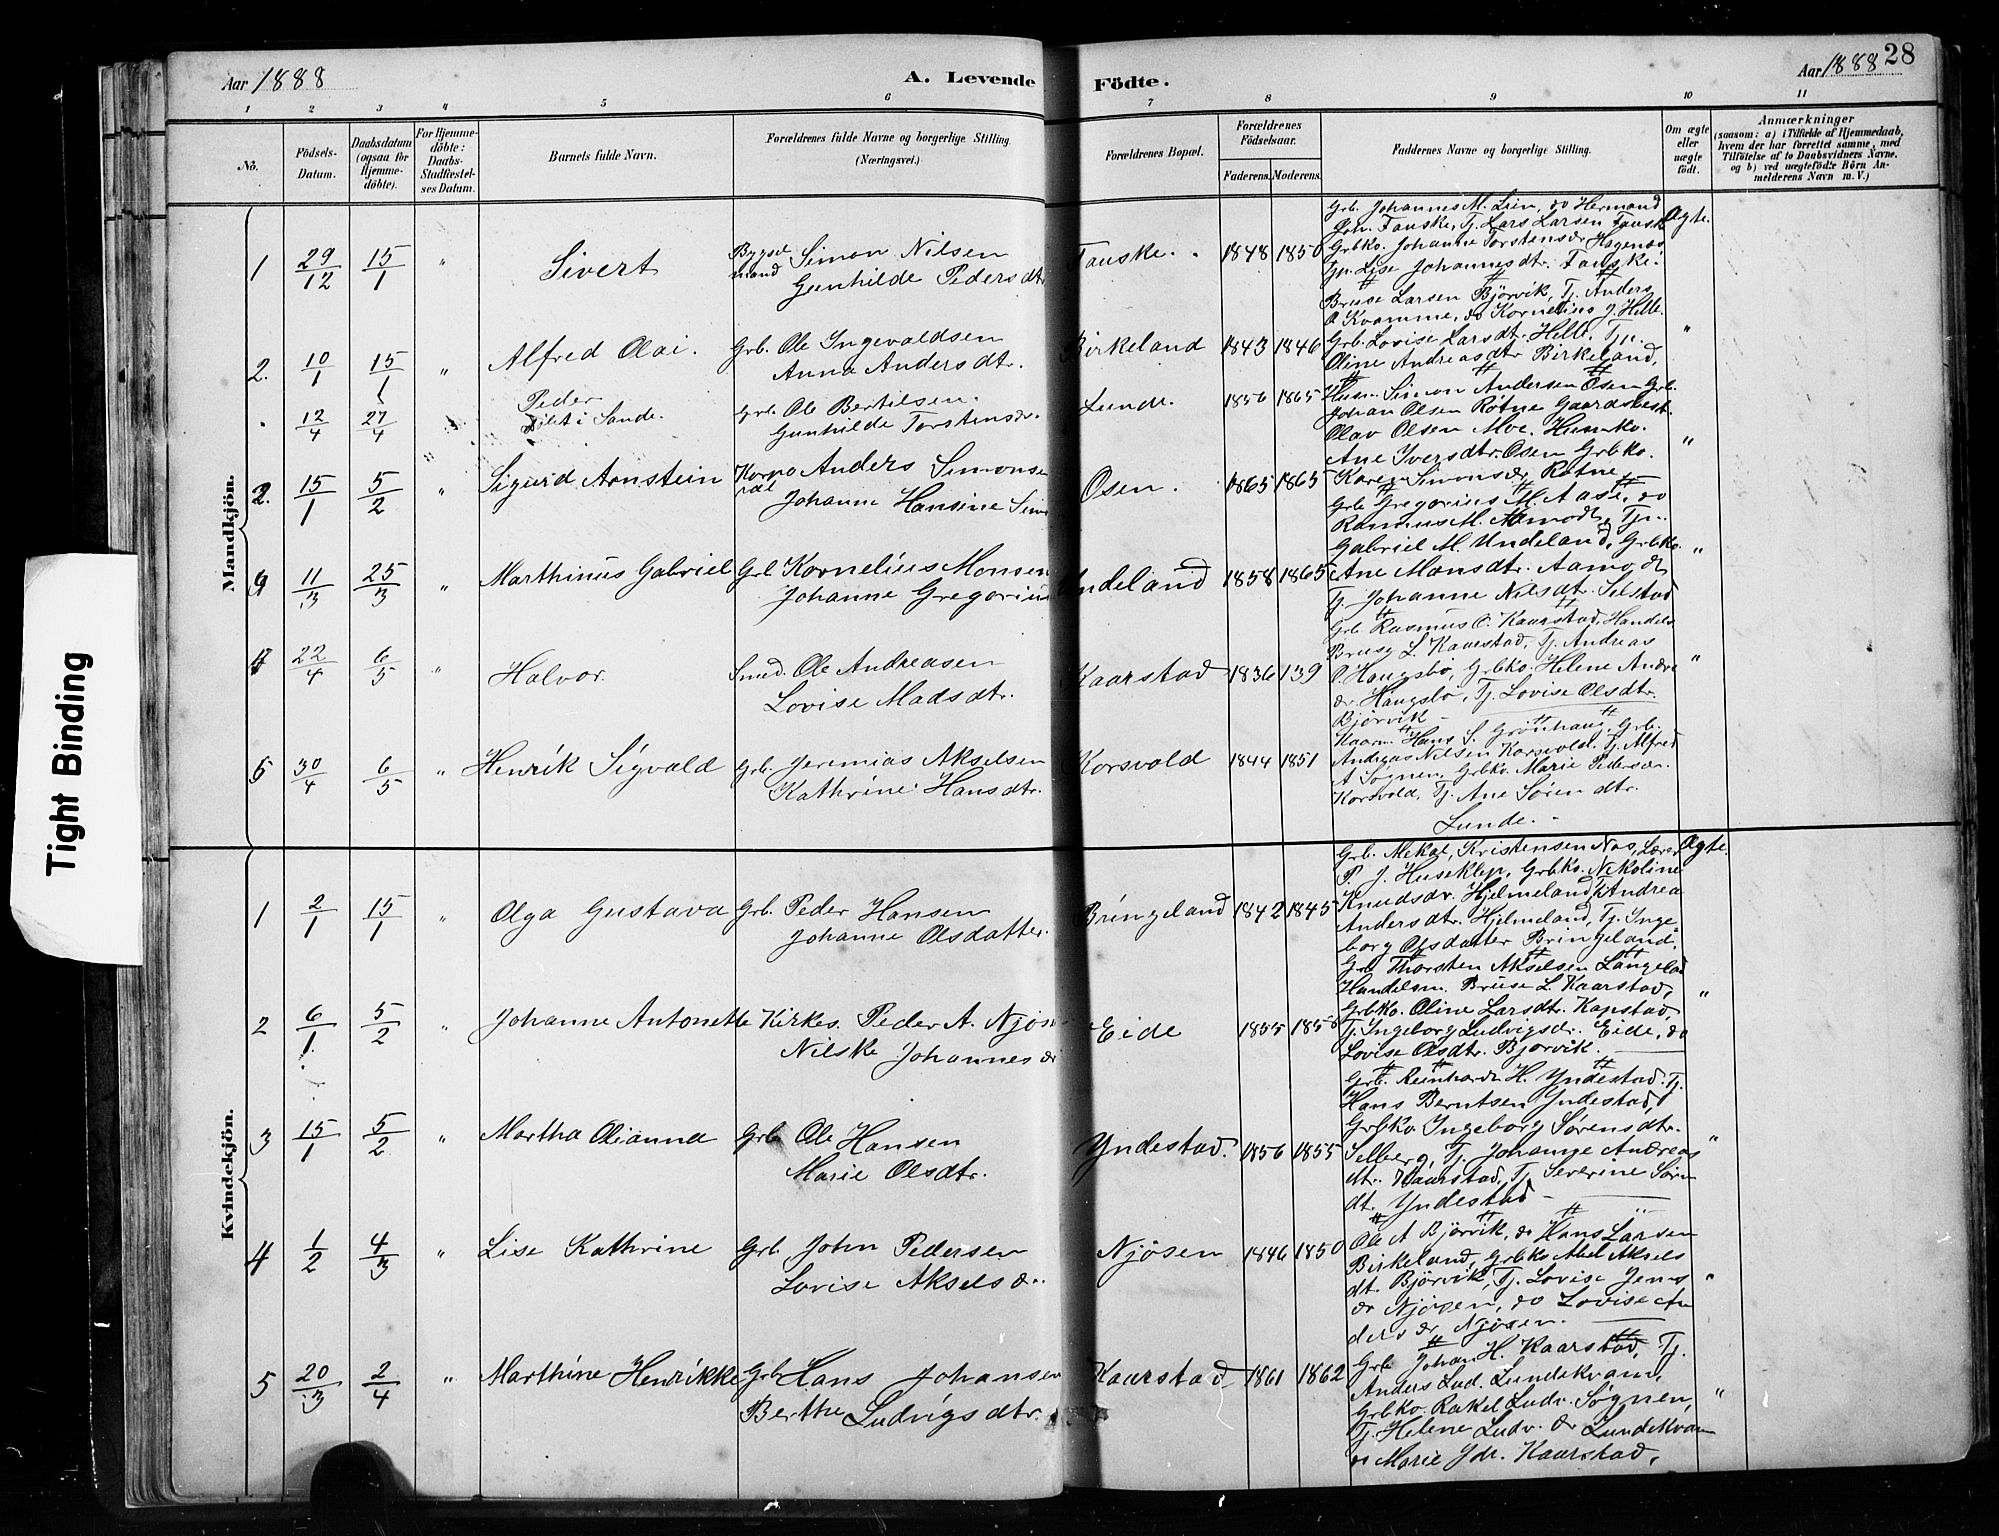 Aar 1888
A. Levende
Födte.
Aar 1888
28
1 2 3 " 5 6 7 8 9 10 11
No.
Födsels-Datum.
Daabsdatum (ogsaa for Hjemme-döbte).
For Hjemme-döbte: Daabs-Stadfæstel-ses Datum.
Barnets fulde Navn.
Forældrenes fulde Navne og borgerlige Stilling.
(Næringsvei.)
Forældrenes Bopæl.
Forældrenes Födselsaar.
Faderens. Moderens.
Faddernes Navne og borgerlige Stilling.
Om ægte eller uægte födt.
Anmærkninger
(saasom: a) i Tilfælde af Hjemmedaab,
hvem der har forrettet samme, med
Tilföielse af to Daabsvidners Navne.
og b) ved uægtefödte Börn An-
melderens Navn m. V.)
Mandkjön.
1 29/12 15/1 " Sivert
Simon Nilsen
Gunhilde Pedersdtr
Fauske. 1848 1850
Grb. Johannes M. Lien, do Hermand
Joh. Fauske, Tj. Lars Larsen Fauske
Grbko. Johanne Torstensdr
Tjp. Lise Johannesdtr. Fauske.
Ægte.
2. 10/1 15/1 " Alfred Olai.
Grb. Ole Ingevaldsen
Anna Andersdtr.
Birkeland 1843 1846
Bruse Larsen Björvik, Tj. Anders
O Kvamme, do Kornelius J. Hille.
Grb. Lovise Larsdtr Hille, Tjp.
Oline Andreasdtr Birkeland,
"
12/4 27/4 " Peder
i Sande.
Grb. Ole Bertilsen.
Gunhilde Torstensdr.
Lunde. 1856 1865
2. 15/1 5/2 " Sigurd Arnstein
Anders Simonse
Johanne Hansine Sim
Osen. 1865 1865
Husm. Simon Andersen Osen Grb.
Johan Olsen Rötne Gaardsbest
Olav Olsen Moe. Husmko.
Ane Iversdtr Osen Grbko.
Karen Simonsdr Rötne
"
9 11/3 25/3 " Marthinus Gabriel
Grb Kornelius Monsen
Johanne Gregorius
Undeland 1858 1865
Grb Gregorius M. Aase, do
Rasmus M. Aamodt, Tjp.
Gabriel M. Undeland, Grbko.
Ane Monsdtr. Aamo, do
Tj. Johanne Nilsdtr. Selstad
"
4 22/4 6/5 " Halvor.
Smed. Ole Andreasen
Lovise Madsdtr.
Kaarstad 1836 139
Grb. Rasmus O. Kaarstad, Handels
Bruse L Kaarstad, Tj. Andreas
O. Haugsbö, Grbko. Helene Andre
dr Haugsbö, Tj. Lovise Olsdtr.
Björvik
"
5 30/4 6/5 " Henrik Sigvald
Grb. Jeremias Akselsen
Kathrine Hansdtr.
Korsvold 1844 1851
Kaarm. Hans S. Grönhaug, Grb.
Andreas Nilsen Korsvold. Tj. Alfred
A Sögnen, Grbko. Marie Pedersdr.
Korsvold, Tj. Ane Sörendtr.
Lunde.
Kvindekjön.
1 2/1 15/1 " Olga Gustava
Grb. Peder Hansen
Johanne Olsdatter.
Bringeland 1842 1845
Grb. Mekal, Kristensen Nos, Lærer
P. J. Huseklep, Grbko. Nikoline
Knudsdr. Hjelmeland, Tj. Andrea
Andersdtr. Hjelmeland, Tj. Inge
borg Olsdatter Bringeland.
Ægte.
2 6/1 5/2 " Johanne Antonette
Kirkes. Peder A. Njös
Nilske Johannesdr
Eide 1855 1850
Grb Thorsten Akselsen Langelad
Handelsm. Bruse L. Kaarstad,
Grbko. Oline Larsdtr. Kapstad,
Tj. Ingeborg Ludvigsdr. Eide, do
Lovise Olsdtr. Björvik.
"
3 15/1 5/2 " Martha Olianna
Grb. Ole Hansen
Marie Olsdtr.
Yndestad. 1856 1855
Grb. Reinhardt H. Yndestad. Tj.
Hans Berntsen Yndestad,
Grbko. Ingeborg Sörensdtr.
Selberg, Tj. Johanne Andreas
dtr. Kaarstad, Tj. Severine Sörn
dt. Yndestad
"
4 1/2 4/3 " Lise Kathrine
Grb. John Pedersen
Lovise Akselsdr.
Njösen 1846 1850
Ole A Björvik, do Hans Larsen
Birkeland, Grbko Abel Aksels
dt. Björvik, Tj. Lovise Jens
dr Njösen, do Lovise An
ders dr Njösen.
"
5 20/3 2/4 " Marthine Henrikke
Grb Hans Johansen
Berthe Ludvigsdtr.
Kaarstad 1861 1862
Grb. Johan H. Kaarstad, Tj.
Anders Lud. Lundekvam,
Grbko. Rakel Ludv. Sögnen,
Tj. Helene Ludv. dr Lundekvam
do Marie Kaarstad.
"
Tight Binding